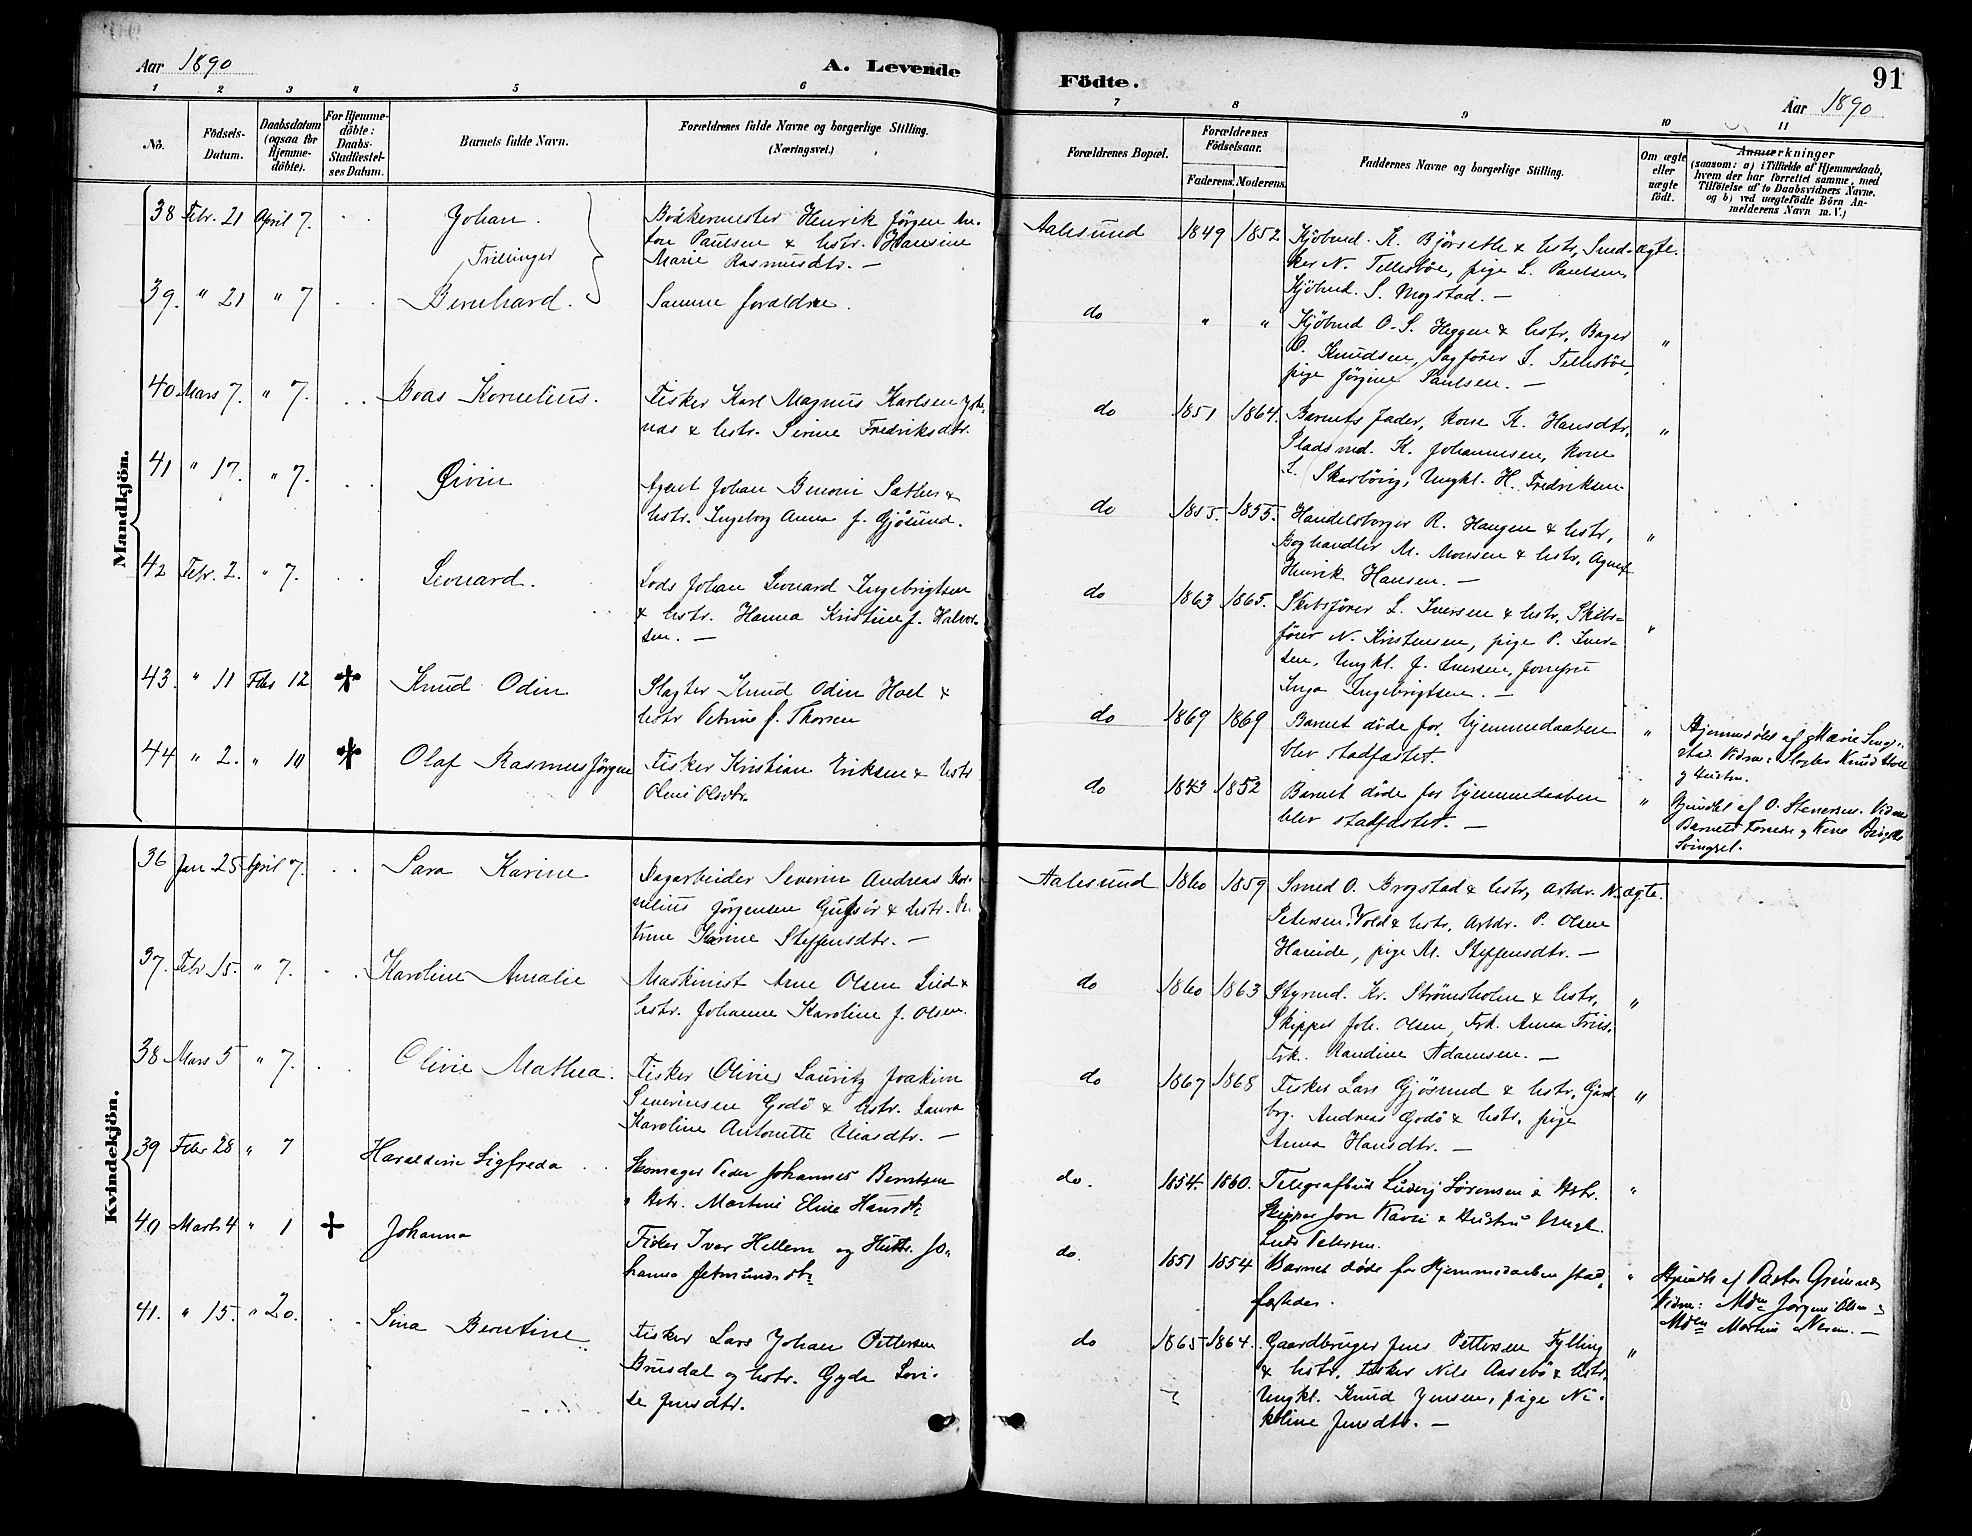 Aar 1890
A. Levende
Födte.
91
Aar 1890
1 2 3 4 5 6 7 8 9 10 11
No.
Födsels-
Datum.
Daabsdatum
(ogsaa for
Hjemme-
döbte).
For Hjemme-
döbte:
Daabs-
Stadfæstel-
ses Datum.
Barnets fulde Navn.
Forældrenes fulde Navne og borgerlige Stilling.
(Næringsvei.)
Forældrenes Bopæl.
Forældrenes
Födselsaar.
Faderens. Moderens.
Faddernes Navne og borgerlige Stilling.
Om ægte
eller
uægte
födt.
Anmærkninger
(saasom: a) i Tilfælde af Hjemmedaab,
hvem der har forrettet samme, med
Tilföielse af to Daabsvidners Navne.
og b) ved uægtefödte Börn An-
melderens Navn m. V.)
Mandkjön.
38 Febr. 21 April 7. Johan.
Trillinger
Bödkermester Henrik Jörgen An-
ton Paulsen & hstr. Hansine
Marie Rasmusdtr. —
Aalesund 1849 1852
Kjöbmd. K. Björseth & hstr, Sned- ægte.
ker N. Tellesböe, pige L. Paulsen,
Kjöbmd. S. Mogstad. —
39. " 21 " 7 Bernhard.
Samme forældre.
do " "
Kjöbmd O. S. Heggen & hstr, Bager
C. Knudsen, Sagförer S. Tellesböe, "
pige Jörgine Paulsen. —
40 Mars 7. " 7. Boas Kornelius.
Fisker Karl Magnus Karlsen
næs & hstr. Serine Fredriksdtr.
do 1851 1864.
Barnets fader, kone K. Hansdtr, "
Pladsmd. K. Johannesen, kone
L. Skarbövig, Ungkl. H. Fredriksen
41 " 17. " 7. Øivin
Agent Johan Benoni Sather &
hstr. Ingeborg Anna f. Gjösund.
do 1855. 1855.
Handelsborger R. Haugen & hstr, "
Boghandler M. Monsen & hstr, Agent
Henrik Hansen. —
42 Febr. 2. " 7. Leonard.
Lods Johan Leonard Ingebrigtsen
& hstr. Hanna Kristine f. Halvor-
sen. —
do 1863 1865.
Skibsförer L. Iversen & hstr, Skibs-
förer N. Kristensen, pige P. Iver- "
sen, Ungkl. J. Iversen, Jomfru
Inga Ingebrigtsen. —
43. " 11 Febr 12 Knud Odin
Slagter Knud Odin Hoel &
hstr Petrine f. Thorsen
do 1869 1869
Barnet döde før hjemmedaaben "
blev stadfæstet.
Hjemmedöbt af Marie
stad Vidne: Slagter Knud Hoel
og hustru.
44 " 2. " 10 Olaf Rasmus Jörgen
Fisker Kristian Eriksen & hstr
Oline Olsdtr.
do 1843 1852
Barnet döde før hjemmedaaben "
blev stadfæstet. —
Hjemdbt af O. Stenersen. Vidne
Barnets Forældre og Kone
Kvindekjön.
36 Jan 25 April 7. Sara Karine
Dagarbeider Severin Andreas Kor-
nelius Jörgensen & hstr. Pe-
trine Karine Steffensdtr. —
Aalesund 1860 1859
Smed O. Brogstad & hstr, Arbdr. N. ægte.
Petersen Vold & hstr, Arbdr. P. Olsen
Hareide, pige M. Steffensdtr. —
37. Febr 15. " 7. Karoline Amalie
Maskinist Arne Olsen Lied &
hstr. Johanne Karoline f. Olsen.
do 1860 1863
Styrmd. Kr. Strömsholm & hstr, "
Skipper Joh. Olsen, Frk. Anna Friis
Frk. Randine Adamsen. —
38 Mars 5 " 7. Olivie Mathea.
Fisker Olivier Lauritz Joakim
Severinsen Godö & hstr. Laura
Karoline Antonette Eliasdtr. —
do 1867 1868
Fisker Lars Gjösund & hstr, Gård- "
brg. Andreas Godö & hstr, pige
Anna Hansdtr. —
39 Febr 28 " 7 Haraldine Sigfreda
Skomager Peder Johannes Berntsen
& Hstr. Martine Eline Hansdtr
do. 1854. 1860.
Telegrafbud Ludvig Sörensen & Hstr. "
Skipper Jon Kavli & Hustru Ungk.
Petersen.
40 Marts 4 " 1 Johanna
Fisker Ivar Hellem og Hustr. Jo-
hanna Jetmundsdtr
do. 1851 1854
Barnet døde før Hjemmedaaben stad- "
fæstedes.
Hjmdbt af Pastor Grimnæs
Vidne: Mdm Jörgine Olsen &
Mdm Martine Nesen. —
41. " 15. " 20. Sina Berntine
Fisker Lars Johan Pettersen
Brusdal og hstr. Gyda Lovi-
se Jensdtr.
do 1865 1864.
Gaardbruger Jens Pettersen Fylling "
& hstr, Fisker Nils Aasebö & hstr,
Ungkl. Knud Jensen, pige Ni-
koline Jensdtr. —